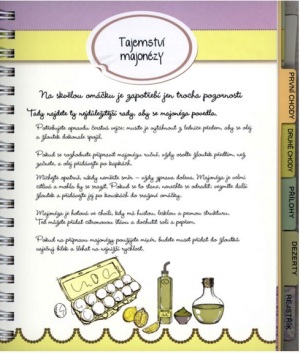 Tajemství
majonézy
Na skvělou omáčku je zapotřebí jen trocha pozornosti
Tady najdete ty nejdůležitější rady, aby se majonéza povedla.
Potřebujete opravdu čerstvá vejce; musíte je vytáhnout z lednice předem, aby se olej
a žloutek dokonale spojil.
Pokud se rozhodnete připravit majonézu ručně, vždy osolte žloutek předtím, než
začnete, a olej přidávejte po kapkách.
Míchejte opatrně, nikdy neměňte směr – vždy zprava doleva. Majonéza je velmi
citlivá a mohla by se srazit. Pokud se to stane, nenechte se odradit: vezměte další
žloutek a přidávejte jej po kouskách do sražené omáčky.
Majonéza je hotová ve chvíli, kdy má hustou, lesklou a pevnou strukturu.
Teď můžete přidat citronovou šťávu a dochutit solí a pepřem.
Pokud na přípravu majonézy použijete mixér, budete muset přidat do žloutků
vaječný bílek a šlehat na nejnižší rychlost.
PRVNÍ CHODY
DRUHÉ CHODY
PŘÍLOHY
DEZERTY
REJSTŘÍK